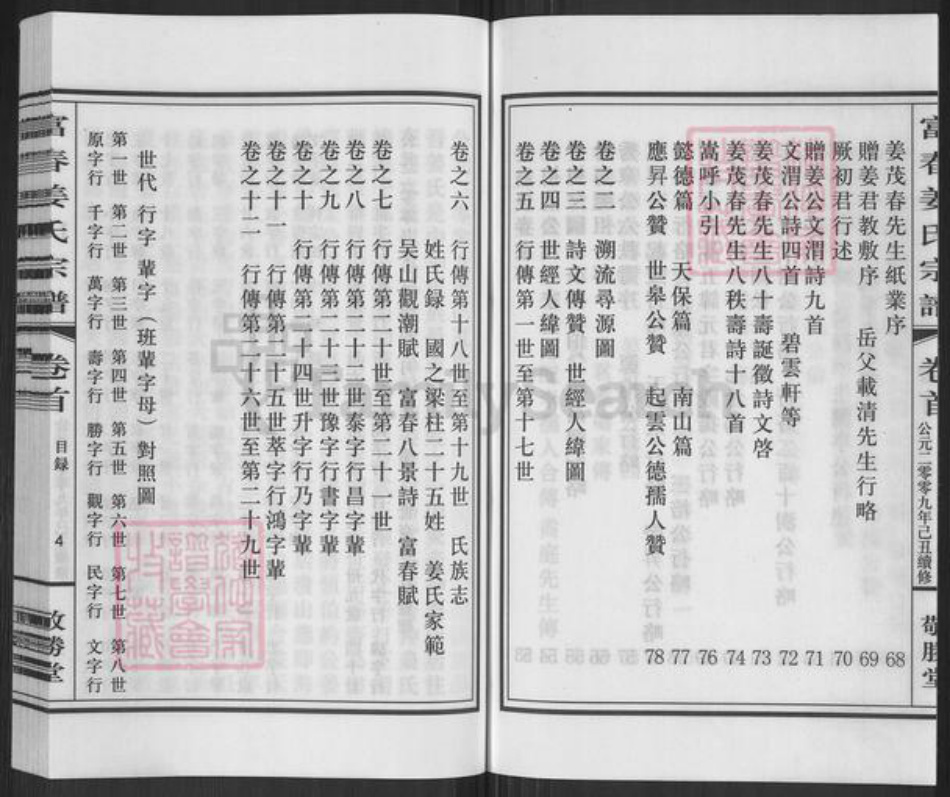 富春姜氏宗譜
卷首
公元二零零九年己丑續修
敬勝堂
姜茂春先生紙業序 68
贈姜君教敷序 岳父載清先生行略 69
厥初君行述 70
贈姜公文渭詩九首 71
文渭公詩四首 碧雲軒等 72
姜茂春先生八十壽誕徵詩文啓 73
姜茂春先生八秩壽詩十八首 74
嵩呼小引 76
懿德篇 天保篇 南山篇 77
應昇公贊 世皋公贊 起雲公德孺人贊 78
卷之二 溯流尋源圖
卷之三 詩文傳贊 世經人緯圖
卷之四 世經人緯圖
卷之五 行傳第一世至第十七世
卷之六 行傳第十八世至第十九世 氏族志
姓氏録 國之梁柱二十五姓 姜氏家範
吴山觀潮賦 富春八景詩 富春賦
卷之七 行傳第二十世至第二十一世
卷之八 行傳第二十二世泰字行昌字輩
卷之九 行傳第二十三世豫字行書字輩
卷之十 行傳第二十四世升字行乃字輩
卷之十一 行傳第二十五世萃字行鴻字輩
卷之十二 行傳第二十六世至第二十九世
世代 行字 輩字（班輩字母）對照圖
第一世 第二世 第三世 第四世 第五世 第六世 第七世 第八世
原字行 千字行 萬字行 壽字行 勝字行 觀字行 民字行 文字行
富春姜氏宗譜
卷首
目録
4
敬勝堂
FamilySearch